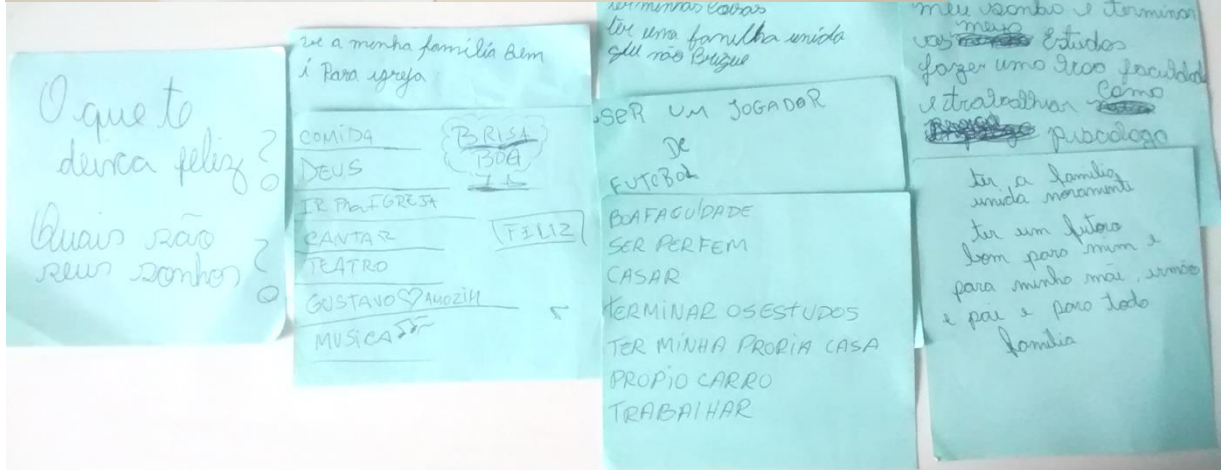 O que te
deixa feliz?
Quais são
seus sonhos?
ve a minha família Bem
i Para igreja
COMIDA
DEUS
IR Pra IGREJA
CANTAR
TEATRO
GUSTAVO AMOZIM
MUSICA
BRISA
BOA
FELIZ
ter minhas coisas
ter uma familha unida
que não Brigue
SER UM JOGADOR
De
FUTEBOL
BOA FACULDADE
SER PERFEM
CASAR
TERMINAR OS ESTUDOS
TER MINHA PRORIA CASA
PROPIO CARRO
TRABAIHAR
meu sonho e terminar
meus Estudos
fazer uma faculdade
e trabalhar como
piscologo
ter a família
unida novamente
ter um futuro
bom para mim e
para minha mãe, irmão
e pai e para toda
família